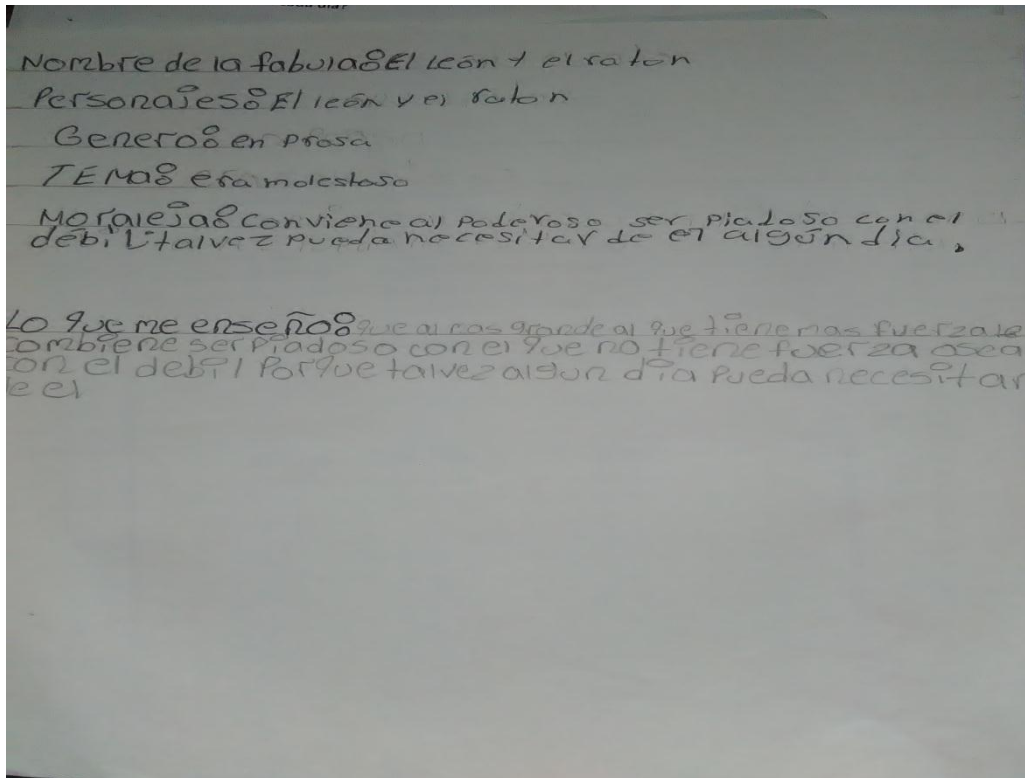 Nombre de la fabula: El león y el raton
Personajes: El león y el raton
Genero: en prosa
TEMA: era molestoso
Moraleja: conviene al poderoso ser piadoso con el
debil talvez pueda necesitar de el algún dia.
Lo que me enseño: que al mas grande al que tiene mas fuerza le
combiene ser piadoso con el que no tiene fuerza osea
con el debil Porque talvez algun dia Pueda necesitar
de el